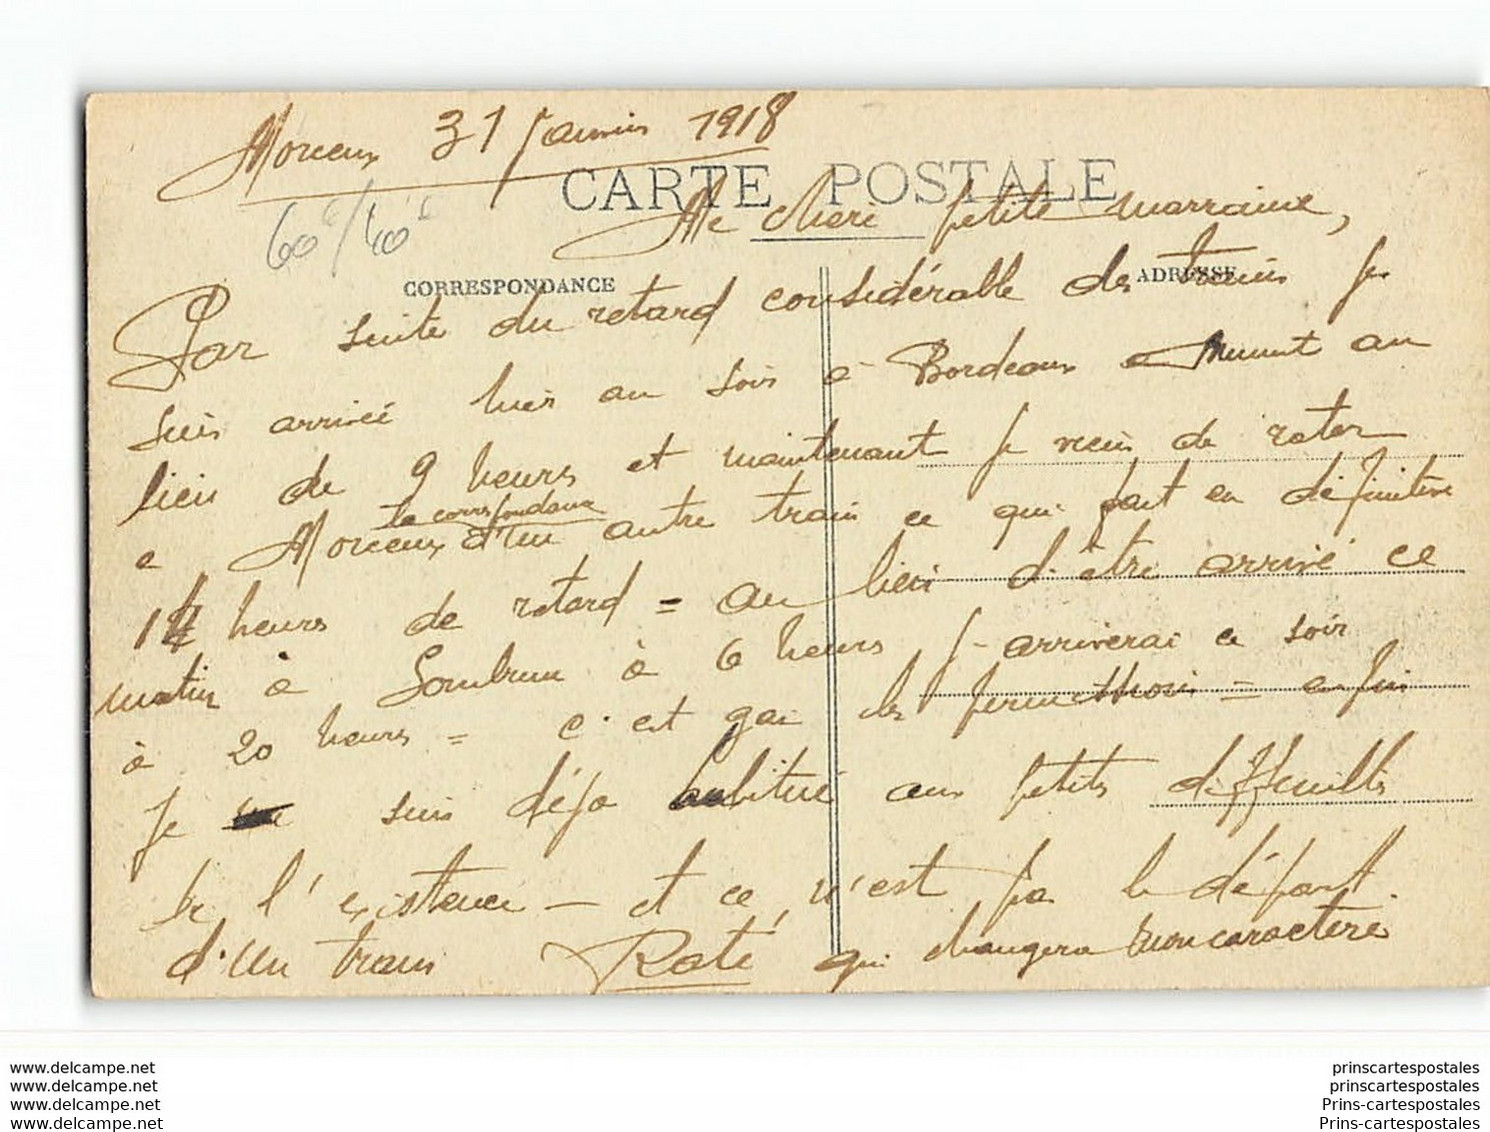 Morcenx 31 Janvier 1918
CARTE POSTALE
Ma chère petite marraine,
60c/40c
CORRESPONDANCE
ADRESSE
Par suite du retard considérable des trains je
suis arrivé hier au soir à Bordeaux à Minuit au
lieu de 9 heures et maintenant je viens de rater
la correspondance
a Morcenx d'un autre train ce qui fait en définitive
14 heures de retard = au lieu d'être arrivé ce
matin à Sombrun à 6 heures, j'arriverai ce soir
à 20 heures = c'est gai les permissions = enfin
je suis déjà habitué aux petits difficultés
de l'existence — et ce n'est pas le départ
d'un train Raté qui changera mon caractère
www.delcampe.net
www.delcampe.net
www.delcampe.net
www.delcampe.net
prinscartespostales
prinscartespostales
Prins-cartespostales
Prins-cartespostales